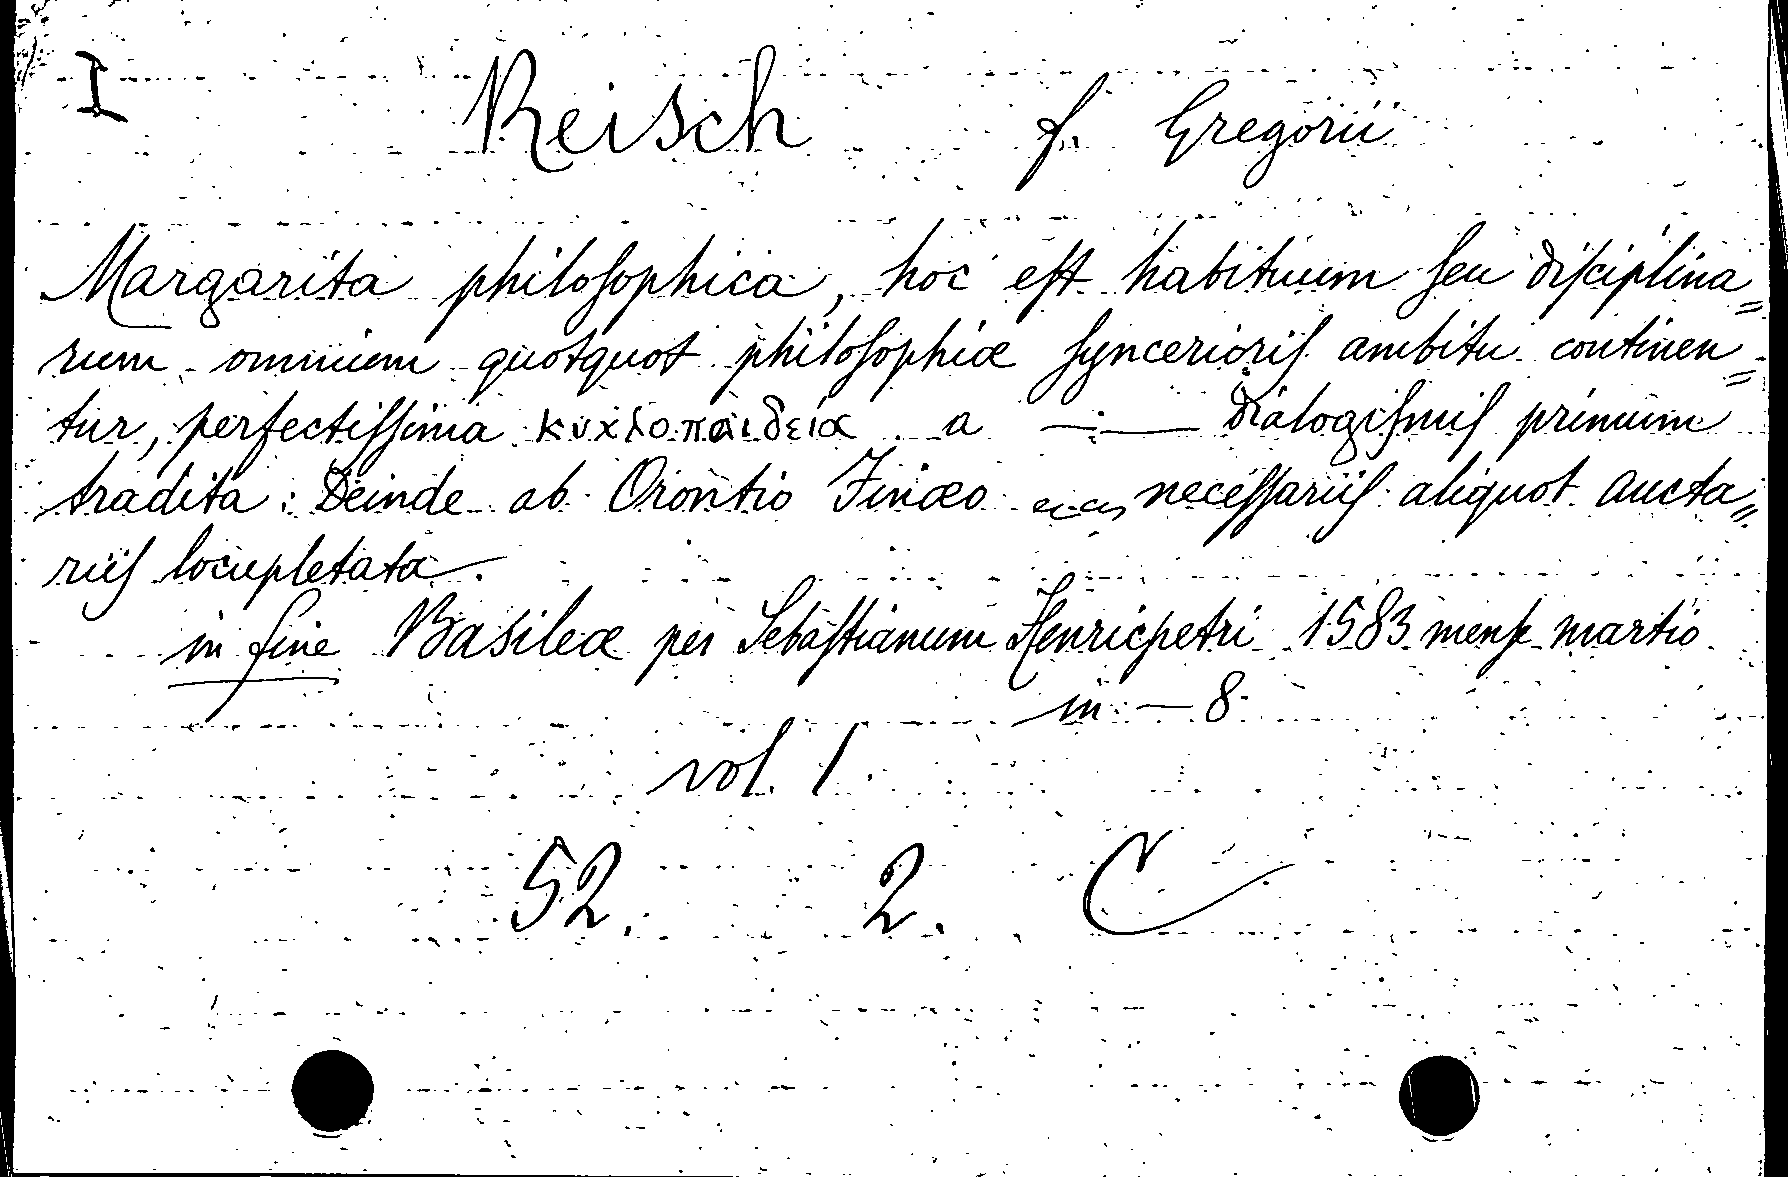 I Reisch f. Gregorii
Margarita philosophica, hoc est habituum seu disciplina=
rum omnium quotquot philosophiæ syncerioris ambitu continen=
tur, perfectissima κυκλοπαιδεία a —— dialogismis primum
tradita: Deinde ab Orontio Finæo necessariis aliquot aucta=
riis locupletata.
in fine Basileæ per Sebastianum Henricpetri 1583 mense martio
in — 8
vol. 1
52. 2. C